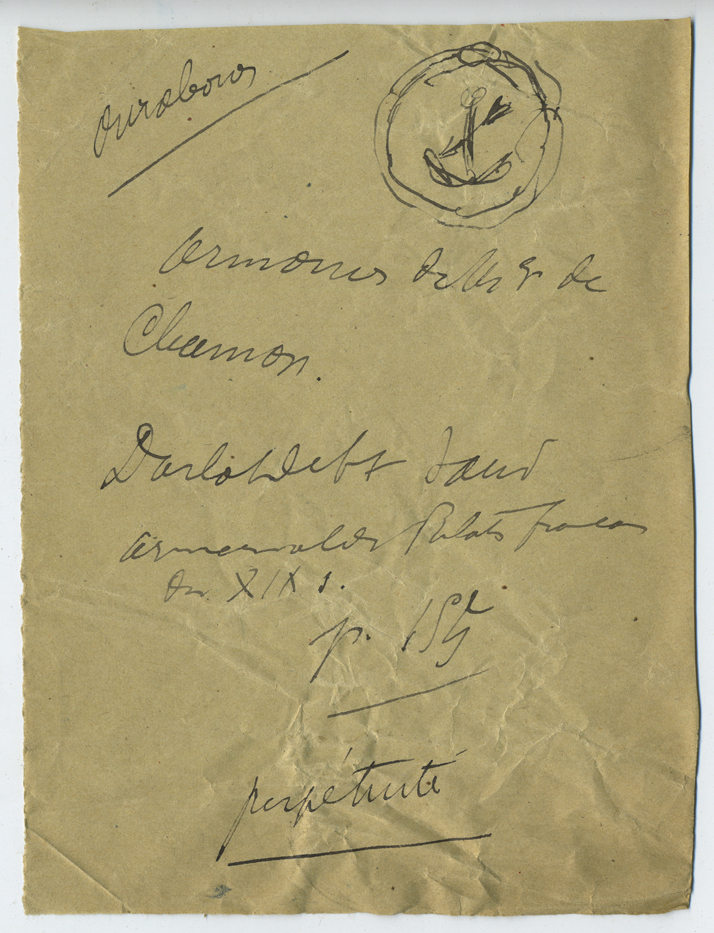 ouroboros
Armoiries de Mgr de
Chamon.
Sand
armorial des Prélats français
du XIX s.
p. 159
perpétuité